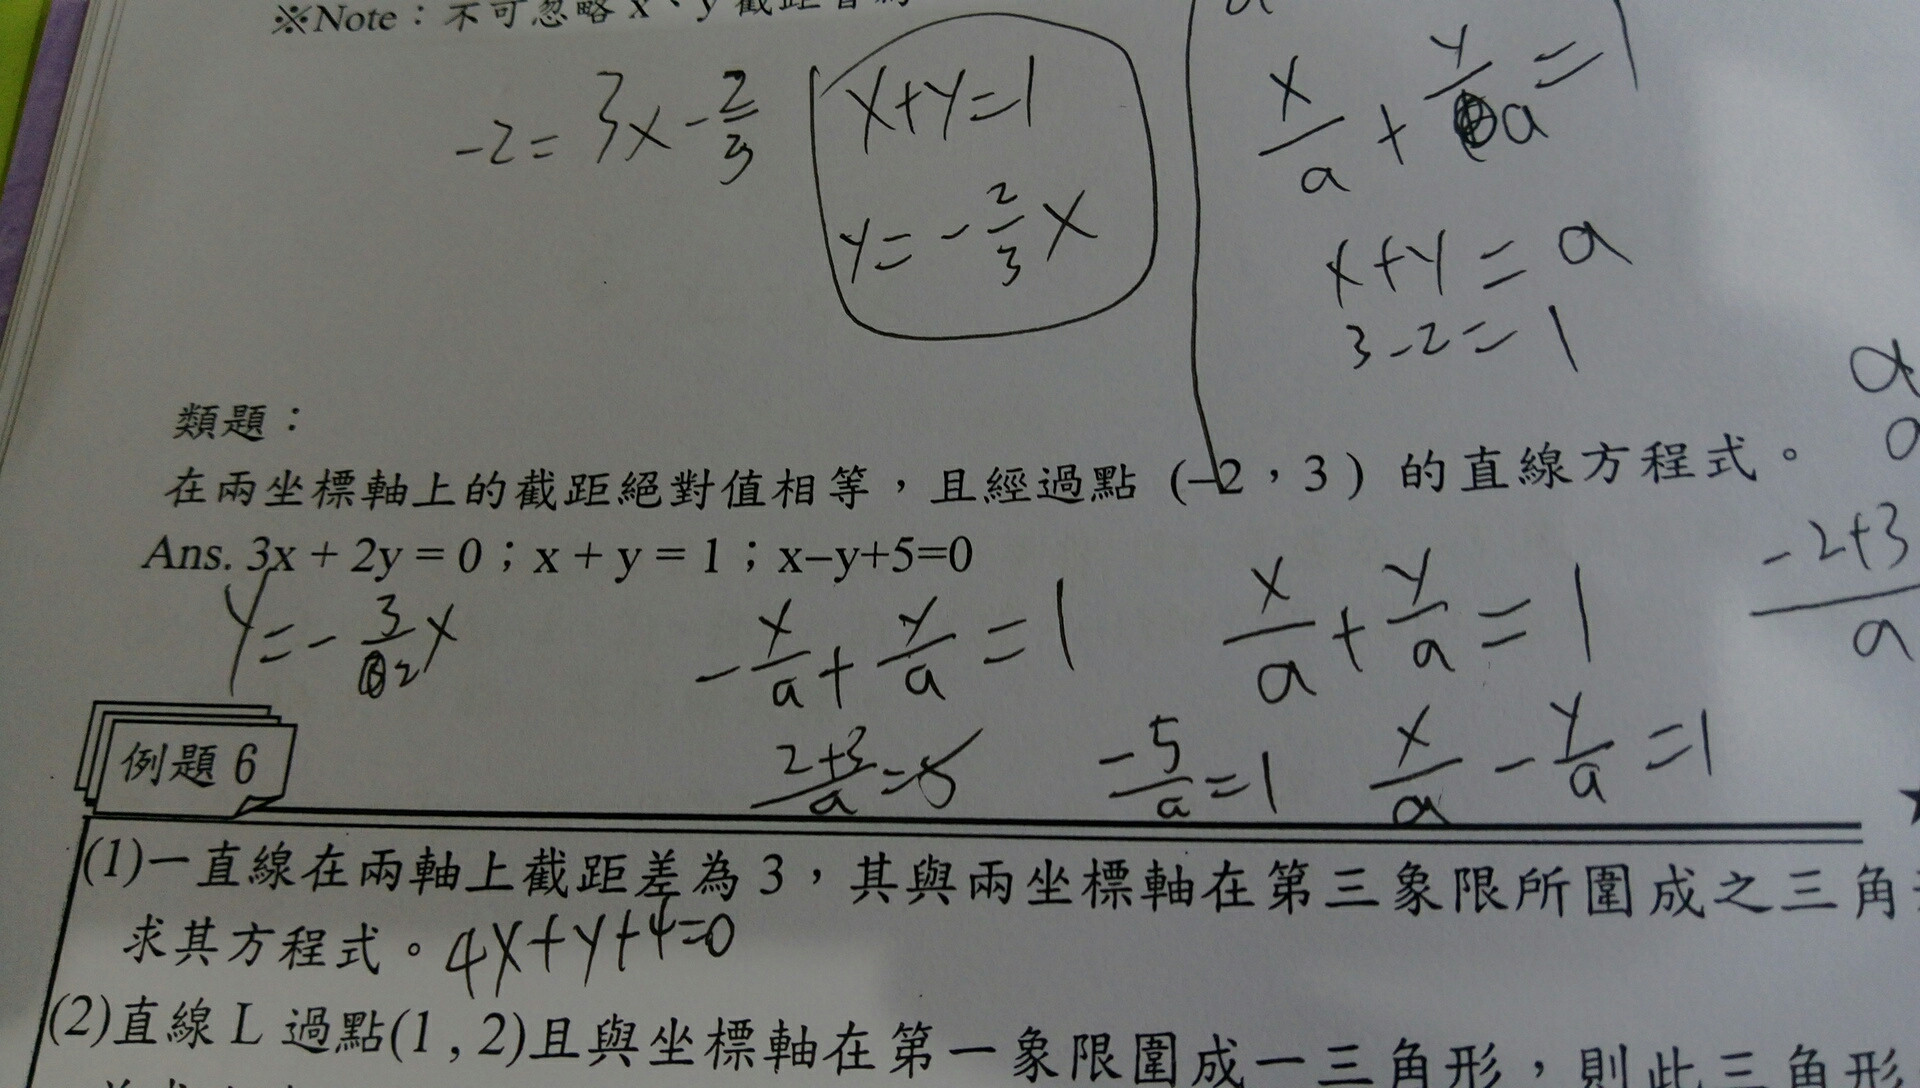 ※Note：不可忽略 x、y 截距皆為
-2 = 3x - 2/3
x+y=1
y = -2/3 x
x/a + y/a = 1
x+y = a
3-2 = 1
類題：
在兩坐標軸上的截距絕對值相等，且經過點 (-2，3) 的直線方程式。
Ans. 3x + 2y = 0；x + y = 1；x-y+5=0
y = -3/2 x
-x/a + y/a = 1
x/a + y/a = 1
-2+3/a
2+3/a =
-5/a = 1
x/a - y/a = 1
例題 6
(1)一直線在兩軸上截距差為 3，其與兩坐標軸在第三象限所圍成之三角
求其方程式。4x+y+4=0
(2)直線 L 過點(1 , 2)且與坐標軸在第一象限圍成一三角形，則此三角形